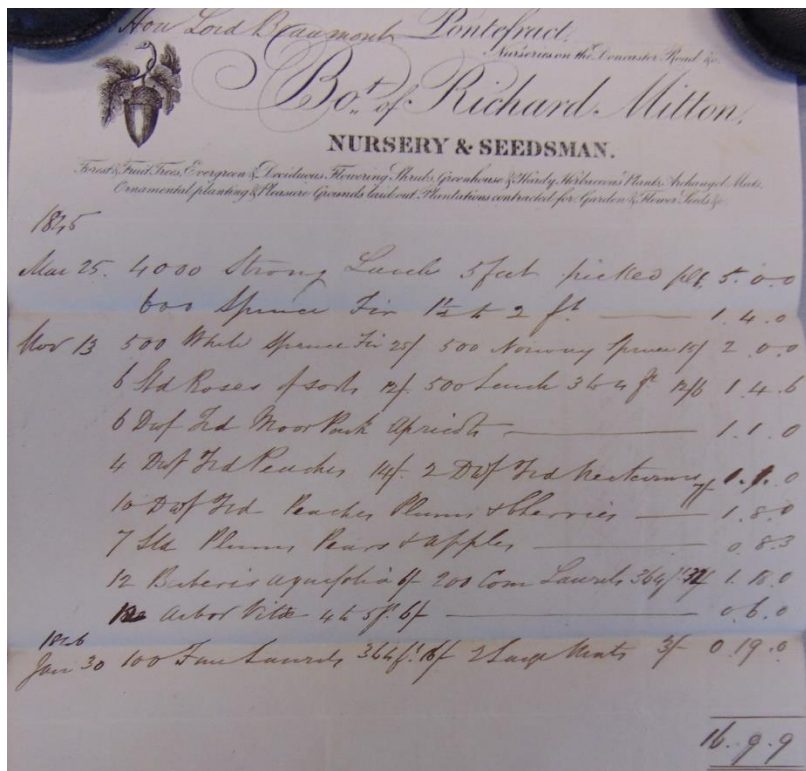 Hon Lord Beaumont Pontefract.
Nurseries on the Doncaster Road &c.
Bot. of Richard Mitton,
NURSERY & SEEDSMAN.
Forest & Fruit Trees, Evergreen & Deciduous Flowering Shrubs, Greenhouse & Hardy Herbaceous Plants, Archangel Mats,
Ornamental planting & Pleasure Grounds laid out. Plantations contracted for, Garden & Flower Seeds &c
1845
Mar 25. 4000 Strong Larch 5 feet picked 5.0.0
600 Spruce Fir 1½ to 2 ft. 1.4.0
Nov 13 500 White Spruce Fir 25/ 500 Norway Spruce 15/ 2.0.0
6 Std Roses of sorts 12/. 500 Larch 3 to 4 ft 12/6 1.4.6
6 Dwf Trd Moor Park Apricots 1.1.0
4 Dwf Trd Peaches 14/. 2 Dwf Trd Nectarines 7/ 1.1.0
10 Dwf Trd Peaches Plums & Cherries 1.8.0
7 Std Plums Pears & Apples 0.8.3
12 Berberis aquifolia 6/ 200 Com Laurels 3 & 4 ft 32/ 1.18.0
Arbor Vitæ 4 to 5 ft. 6/ 0.6.0
1846
Jan 30 100 Laurels 3 & 4 ft. 16/ 2 Large Mats 3/ 0.19.0
16.9.9